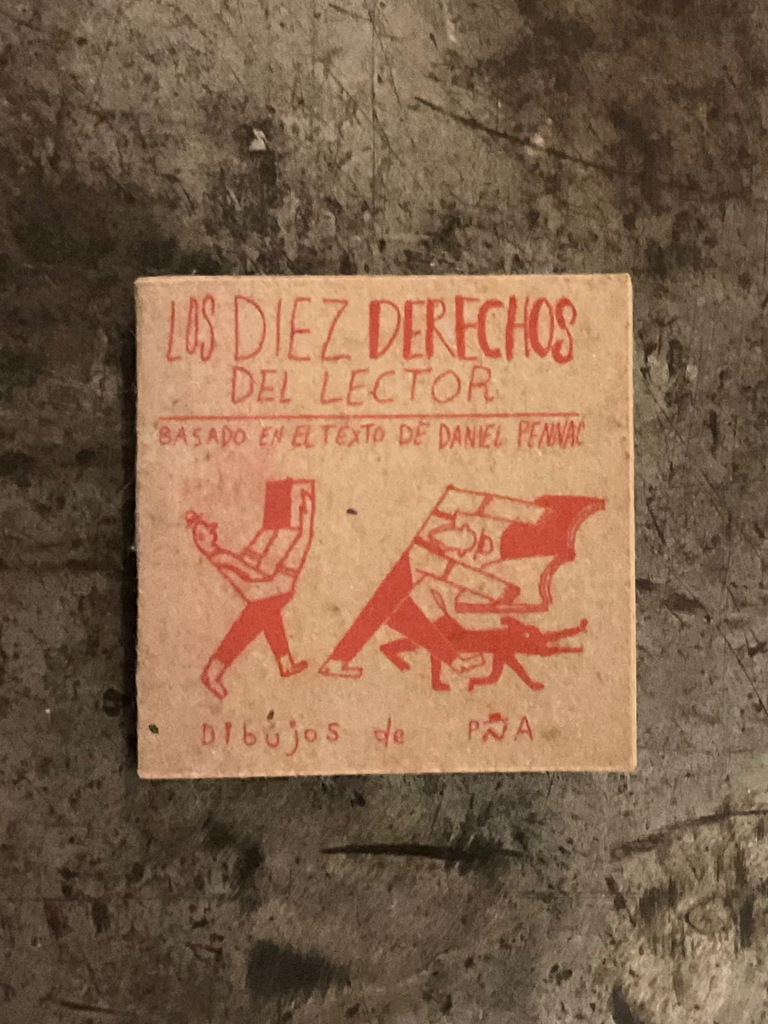 LOS DIEZ DERECHOS
DEL LECTOR
BASADO EN EL TEXTO DE DANIEL PENNAC
DIbújos de PÑA